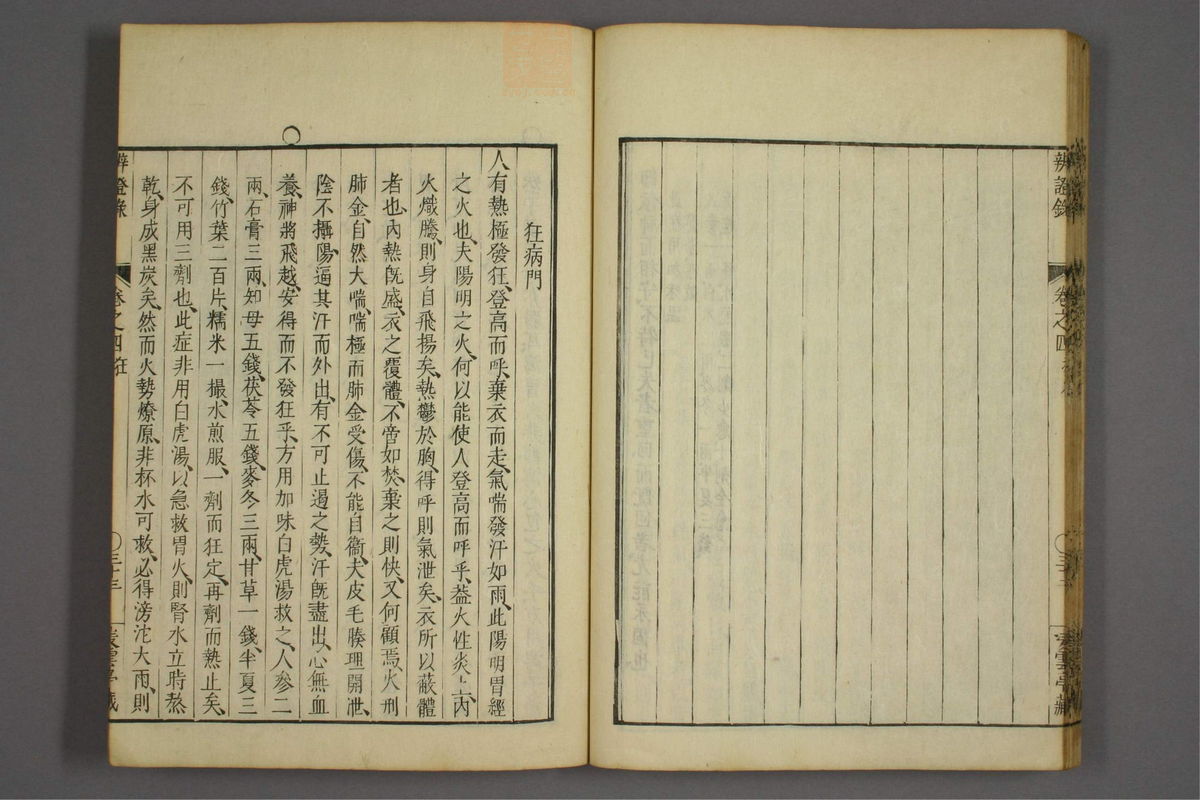 辨證錄
卷之四
狂病門
人有熱極發狂、登高而呼、棄衣而走、氣喘發汗如雨、此陽明胃經
之火也、夫陽明之火、何以能使人登高而呼乎、蓋火性炎上、內
火熾騰、則身自飛揚矣、熱鬱於胸、得呼則氣泄矣、衣所以蔽體
者也、內熱旣盛、衣之覆體、不啻如焚、棄之則快、又何顧焉、火刑
肺金、自然大喘、喘極而肺金受傷、不能自衞、夫皮毛腠理開泄、
陰不攝陽、逼其汗而外出、有不可止遏之勢、汗旣盡出、心無血
養、神將飛越、安得而不發狂乎、方用加味白虎湯救之、人參二
兩、石膏三兩、知母五錢、茯苓五錢、麥冬三兩、甘草一錢、半夏三
錢、竹葉二百片、糯米一撮、水煎服、一劑而狂定、再劑而熱止矣、
不可用三劑也、此症非用白虎湯、以急救胃火、則腎水立時熬
乾、身成黑炭矣、然而火勢燎原、非杯水可救、必得滂沱大雨、則
辨證錄
卷之四狂